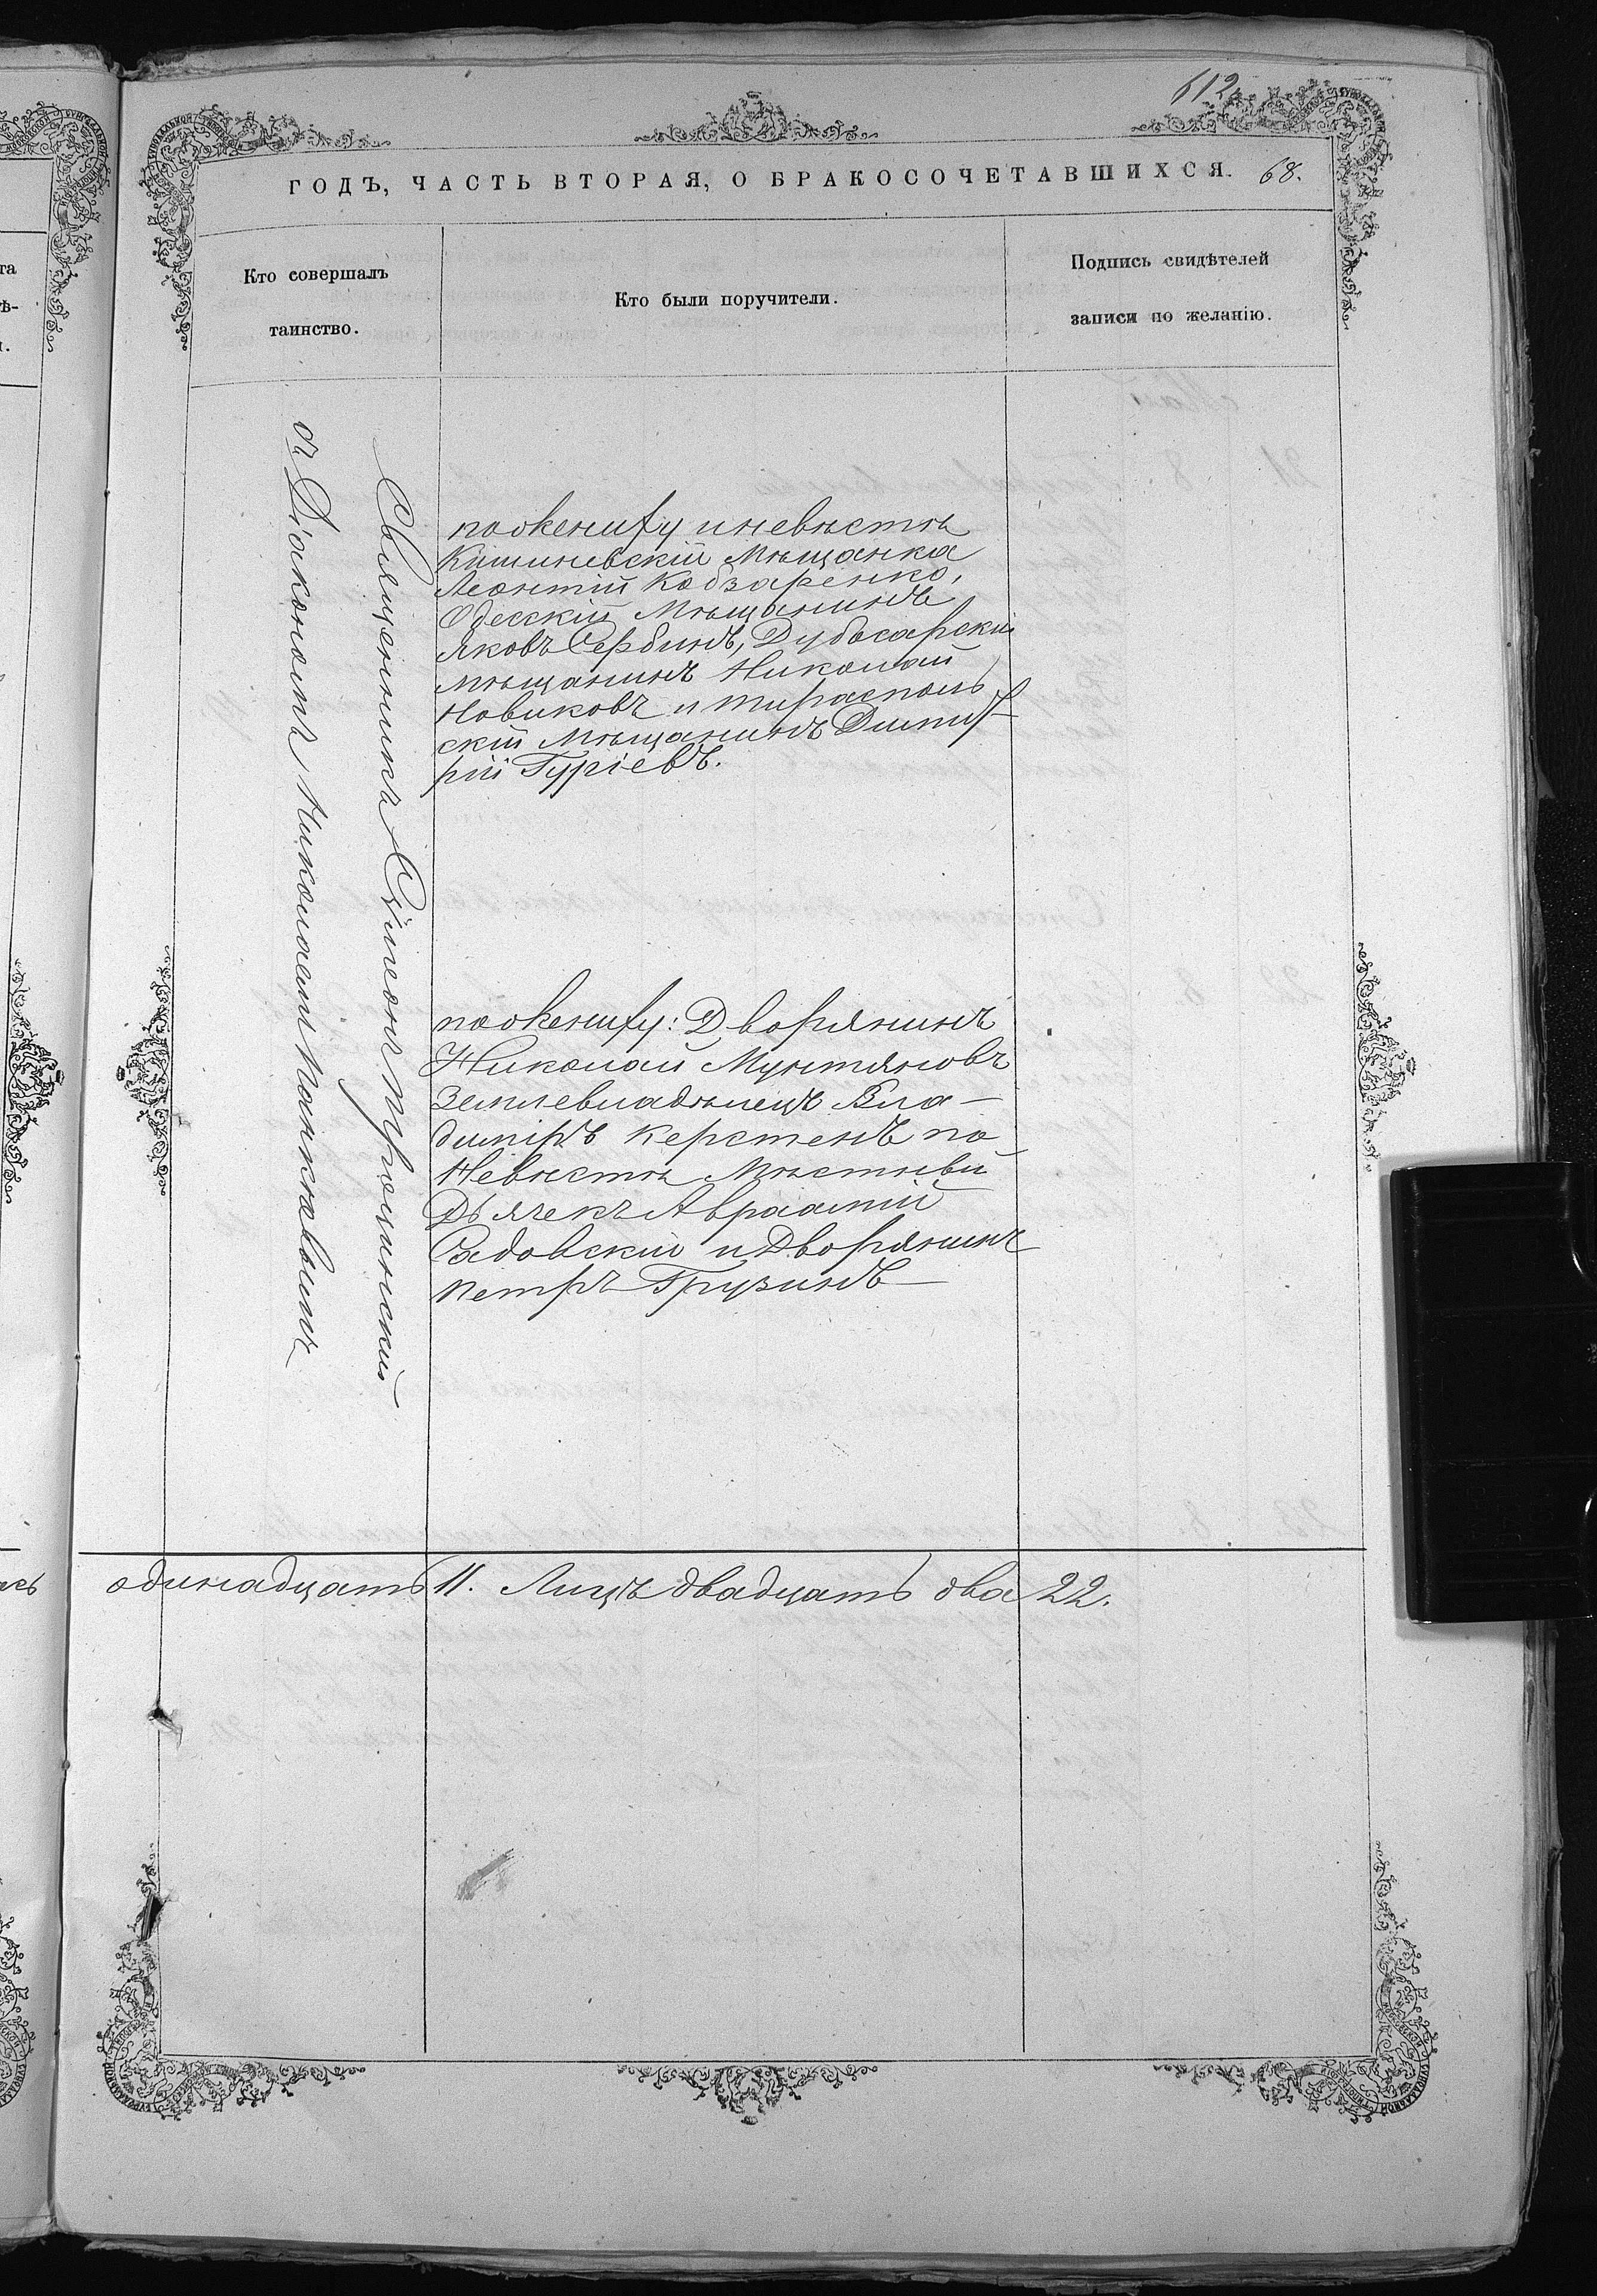 612
ГОДЪ, ЧАСТЬ ВТОРАЯ, О БРАКОСОЧЕТАВШИХСЯ. 68.
Кто совершалъ
таинство.
Кто были поручители.
Подпись свидѣтелей
записи по желанію.
Священникъ Сѵмеонъ Троцинский
съ Діакономъ Николаемъ Панкѣвымъ
по жениху и невѣстѣ
Кишиневскій Мѣщанка
Леонтій Кобзаренко,
Одесскій Мѣщанинъ
Яковъ Сербинъ, Дубосарскій
мѣщанинъ Николай
Новиковъ и тирасполь
скій Мѣщанинъ Дмит-
рій Гуріевъ.
по жениху: Дворянинъ
Николай Мунтяновъ
Землевладѣлецъ Вла-
диміръ Керстенъ по
Невѣстѣ Мѣстный
Дьячекъ Авраамій
Садовскій и Дворянинъ
Петръ Грузинъ
одинадцать 11. Лицъ двадцать два 22.